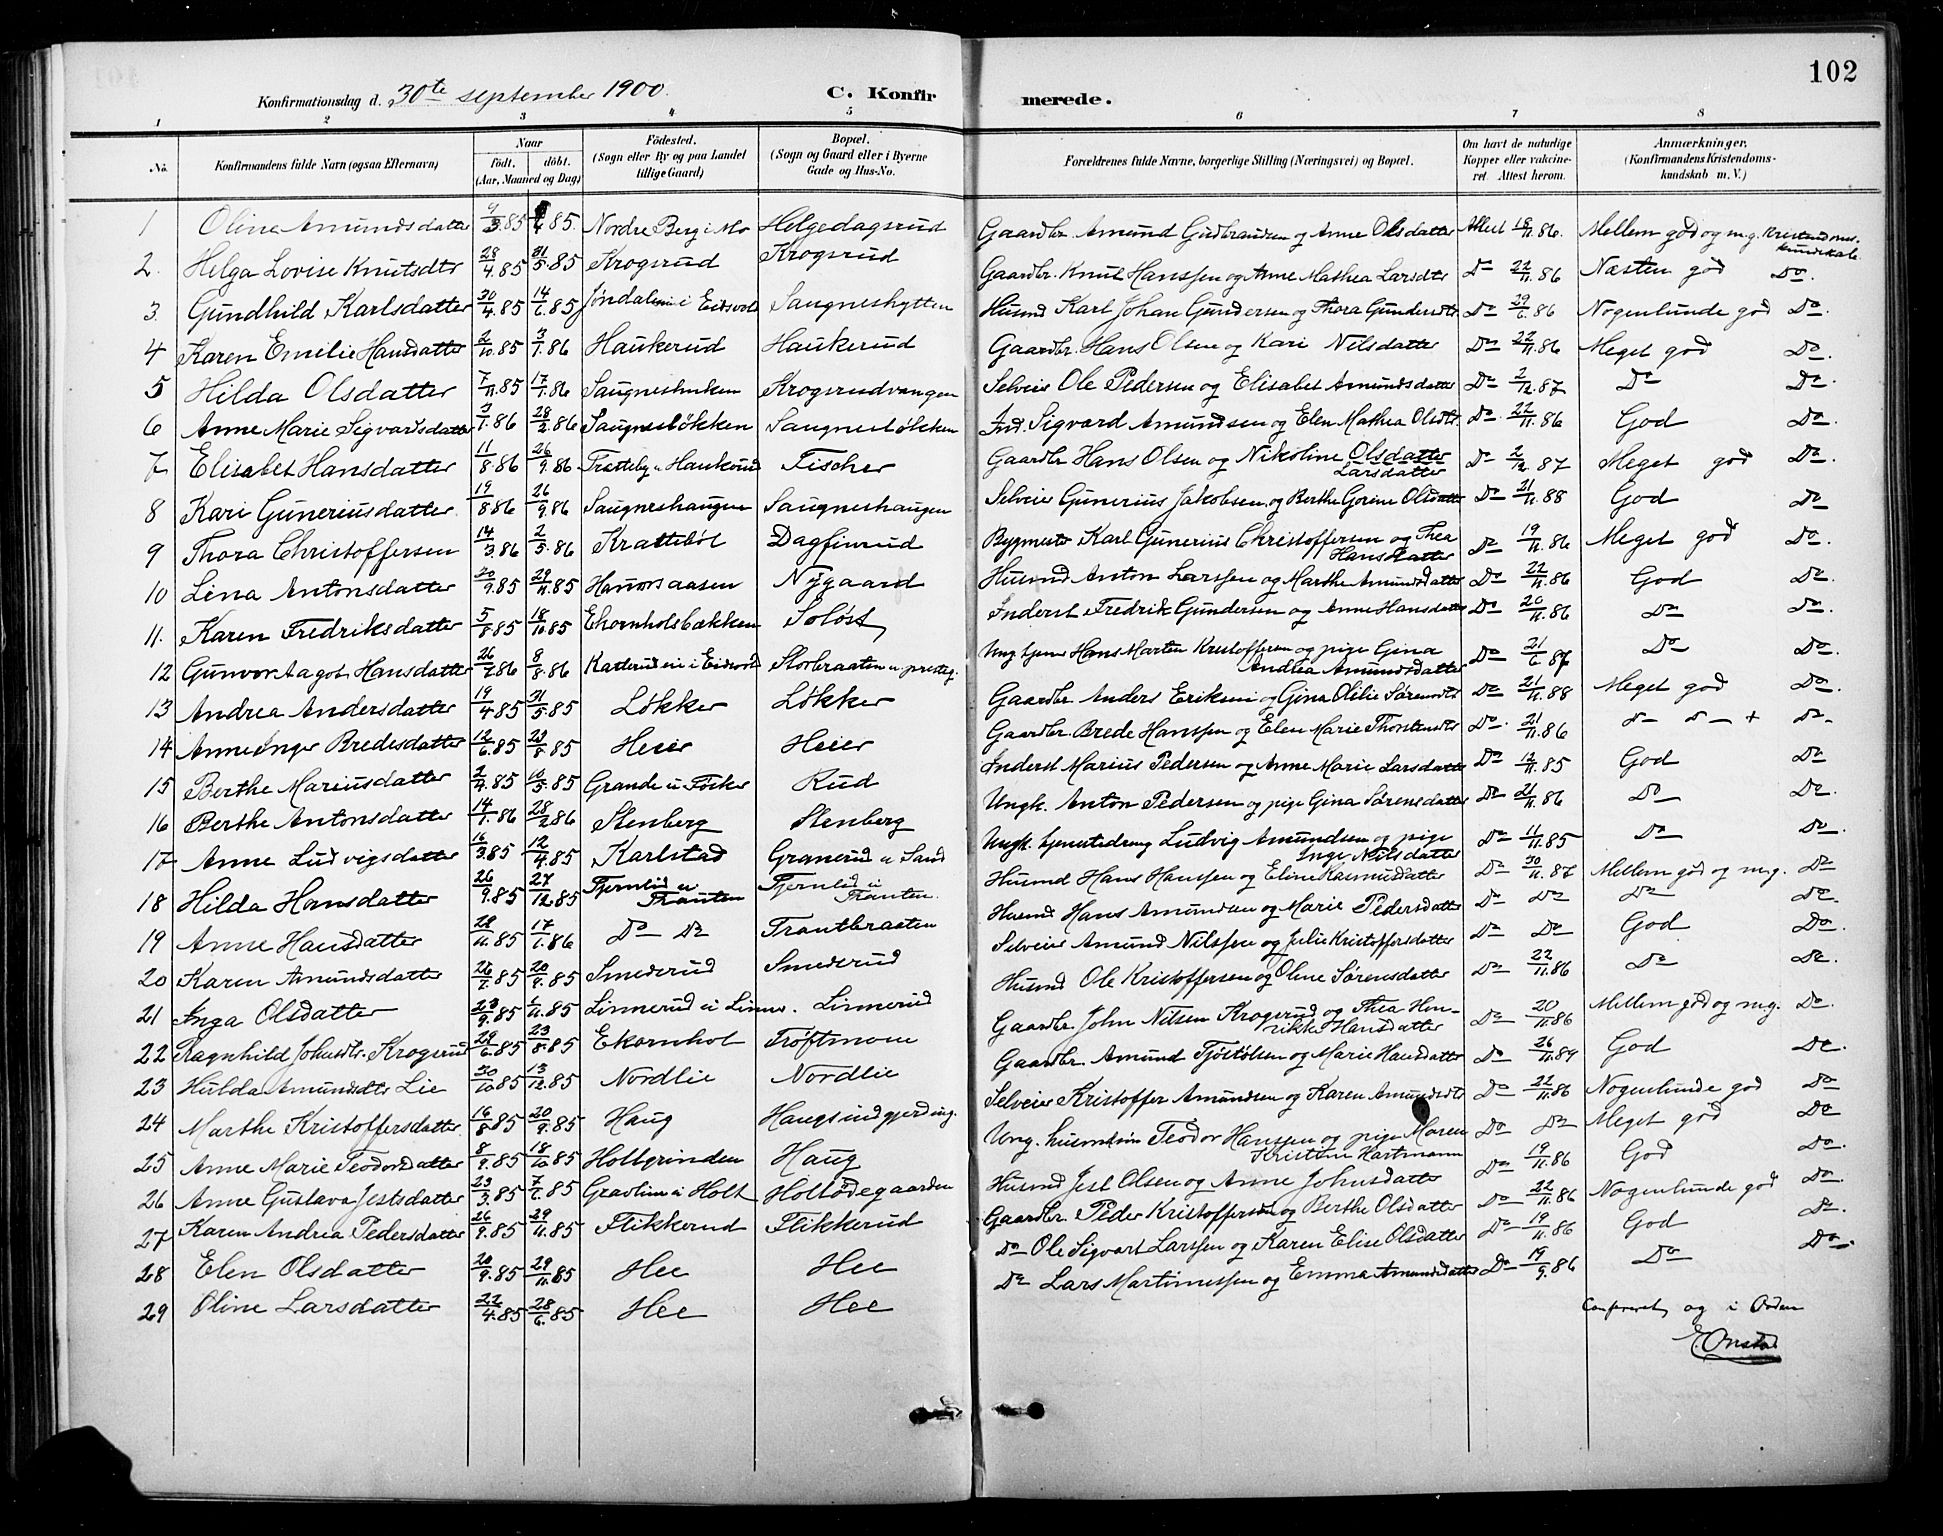 102
Konfirmationsdag d. 30te september 1900. C. Konfirmerede.
1 2 3 4 5 6 7 8
No. Konfirmandens fulde Navn (ogsaa Efternavn) Naar födt. döbt. (Aar, Maaned og Dag) Födested. (Sogn eller By og paa Landet tillige Gaard) Bopæl. (Sogn og Gaard eller i Byerne Gade og Hus-No. Forældrenes fulde Navne, borgerlige Stilling (Næringsvei) og Bopæl. Om havt de naturlige Kopper eller vakcineret. Attest herom. Anmærkninger. (Konfirmandens Kristendomskundskab m. V.)
1 Oline Amundsdatter 9/3.85 /4.85. Nordre Berg i Mo Helgedagsrud Gaardbr. Amund Gudbrandsen og Anne Olsdatter Attest 18/11.86. Mellem god og m.g. Kristendomskundskab
2. Helga Lovise Knutsdtr 28/4.85 31/5.85 Krogsrud Krogsrud Gaardbr. Knut Hanssen og Anne Mathea Larsdtr Do 22/11.86 Næsten god Do.
3. Gundhild Karlsdatter 30/4.85 14/6.85 Jøndalen i Eidsvold Saugneshytten Husmd Karl Johan Gundersen og Thora Gundersdtr Do 29/6.86 Nogenlunde god Do.
4 Karen Emilie Hansdatter 2/10.85 3/1.86 Haukerud Haukerud Gaardbr. Hans Olsen og Kari Nilsdatter Do 22/11.86 Meget god Do.
5 Hilda Olsdatter 7/11.85 17/1.86 Saugneshuken Krogsrudvangen Selveier Ole Pedersen og Elisabet Amundsdatter Do 2/12.87 Do Do.
6 Anne Marie Sigvardsdatter 3/1.86 28/2.86 Saugnesløkken Saugnesløkken Ind. Sigvard Amundsen og Elen Mathea Olsdtr. Do. 22/11.86 God Do.
7 Elisabet Hansdatter 11/8.86 26/9.86 Tratteby u. Haukerud Fischer Gaardbr Hans Olsen og Nikoline Olsdatter Larsdatter Do 2/12.87 Meget god Do.
8 Kari Guneriusdatter 19/8.86 26/9.86 Saugneshaugen Saugneshaugen Selveier Gunerius Jakobsen og Berthe Gorine Olsdatter Do 21/11.88 God Do
9 Thora Christoffersen 14/3.86 2/5.86 Kratteböl Dagfinrud Bygmester Karl Gunerius Christoffersen og Thea Hansdatter Do 19/11.86 Meget god Do.
10 Lina Antonsdatter 20/9.85 29/11.85 Nygaard Husmd Anton Larssen og Marthe Amundsdatter Do 22/11.86 God Do.
11. Karen Fredriksdatter 5/8.85 18/10.85 Ekornholsbækken Soløst Inderst Fredrik Gundersen og Anne Hansdatter Do 20/11.86 Do Do.
12 Gunvor Aagot Hansdatter 26/7.86 8/8.86 Katterudeie i Eidsvold Storbraaten u. presteg. Ung. tjener Hans Martin Kristoffersen og pige Gina Andrea Amundsdatter Do 21/6.87 Do Do.
13 Andrea Andersdatter 19/4.85 31/5.85 Løkker Løkker Gaardbr. Anders Eriksen og Gina Otilie Sørensdtr Do 21/11.88 Meget god Do.
14 Anne Inger Bredesdatter 12/6.85 23/8.85 Heier Heier Gaardbr. Brede Hanssen og Elen Marie Thorstensdtr Do. 21/11.86 Do Do + Do
15 Berthe Mariusdatter 2/4.85 10/5.85 Grande u Fosker Rud Inderst Marius Pedersen og Anne Marie Larsdatter Do 12/11.85 God Do
16 Berthe Antonsdatter 14/1.86 28/2.86 Stenberg Stenberg Ungk. Anton Pedersen og pige Gina Sørensdatter Do 21/11.86 Do Do.
17 Anne Ludvigsdatter 16/3.85 12/4.85 Karlstad Granerud u Sand Ungk. tjenestedreng Ludvig Amundsen og pige Inge Nilsdatter Do 11/11.85 Do Do.
18 Hilda Hansdatter 26/9.85 27/12.85 Tjernlid u Tranten Tjernlid u Tranten. Husmd Hans Hanssen og Eline Rasmusdatter Do 30/11.87 Mellem god og m.g. Do
19 Anne Hansdatter 22/11.85 17/1.86 Do Do Trantbraaten Husmd Hans Amundsen og Marie Pedersdatter Do Do Do Do.
20 Karen Amundsdatter 26/7.85 20/9.85 Smederud Smederud Selveier Amund Nilssen og Julie Kristoffersdatter Do Do God Do.
21 Inga Olsdatter 23/9.85 1/11.85 Linnerud u Linner. Linnerud Husmd Ole Kristoffersen og Oline Sørensdatter Do 22/11.86 Do Do.
22 Ragnhild Johnsdtr. Krogsrud 29/6.85 23/8.85 Ekornhol Trøftmoen Gaardbr. John Nilsen Krogsrud og Thea Henrikke Hansdatter Do 20/11.86 Mellem god og m.g. Do.
23 Hulda Amundsdtr Lie 30/10.85 13/12.85 Nordlie Nordlie Gaardbr. Amund Tjöstölsen og Marie Hansdatter Do 26/11.89 God Do.
24 Marthe Kristoffersdatter 16/8.85 20/9.85 Haug Haugsindgjerding. Selveier Kristoffer Amundsen og Karen Amundsdtr Do 22/11.86 Nogenlunde god Do
25 Anne Marie Teodorsdatter 8/9.85 18/10.85 Holtgrinden Haug Ung. husmdsøn Teodor Hanssen og pige Maren Kristine Hartmann Do Do Meget god Do
26 Anne Gustava Jestsdatter 23/3.85 7/6.85 Gravlun i Holt Holtødegaarden Husmd Jest Olsen og Anne Johnsdatter Do 19/11.86 God Do.
27 Karen Andrea Pedersdatter 26/9.85 29/11.85 Flikkerud Flikkerud Gaardbr. Peder Kristoffersen og Berthe Olsdatter Do 22/11.86 Nogenlunde god Do.
28 Elen Olsdatter 20/9.85 29/11.85 Hee Hee Do Ole Sigvart Larssen og Karen Elise Olsdatter Do 19/11.86 God Do.
29 Oline Larsdatter 22/4.85 28/6.85 Hee Hee Do Lars Martinussen og Emma Amundsdatter Do 19/9.86 Do Do.
Confereret og i Orden
E. Onstad